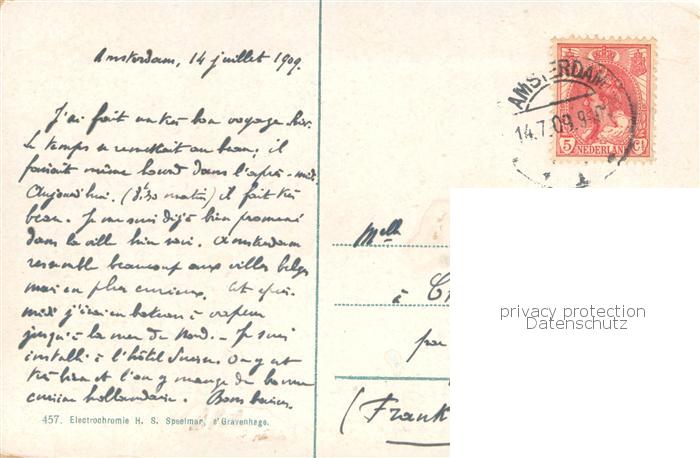 Amsterdam, 14 juillet 1909.
J'ai fait un très bon voyage hier.
Le temps se remettait au beau; il
faisait même lourd dans l'après-midi.
Aujourd'hui. (8h30 matin) il fait très
beau. Je me suis déjà bien promené
dans la ville hier soir. Amsterdam
ressemble beaucoup aux villes belges
mais en plus curieux. Cet après-
midi j'irai en bateau à vapeur
jusqu'à la mer du Nord. - Je suis
installé à l'hôtel Suisse. On y est
très bien et l'on y mange de bonne
cuisine hollandaise. Bons baisers.
457. Electrochromie H. S. Speelman, s'Gravenhage.
AMSTERDAM
14.7.09.9
5 NEDERLAND Ct
Melle
à
par
(Frank
privacy protection
Datenschutz